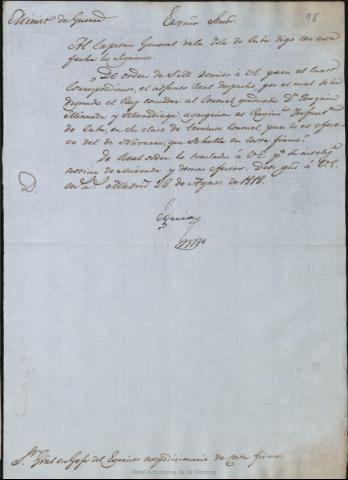 Ministº de Guerra
98
Exmo Señor
Al Capitan General de la Isla de Cuba digo con esta
fecha lo siguiente.
"De orden de S.M. remito á V.E. para el curso
correspondiente, el adjunto Real despacho por el cual se ha
dignado el Rey conceder al Coronel graduado Dn Joaquin
Miranda y Madariaga, agregacion al Regimto Infanta
de Cuba, en su clase de Teniente Coronel, que lo es efecti-
vo del de Navarra, que se halla en Costa firme."
De Real orden lo traslado á V.E. pª su intelig.ª
noticia de Miranda y demas efectos. Dios gue á V.E.
ms as Madrid 28 de Agosto de 1818.
D.
Eguia
Sr Gral en Gefe del Egército expedicionario de Costa firme
Real Academia de la Historia